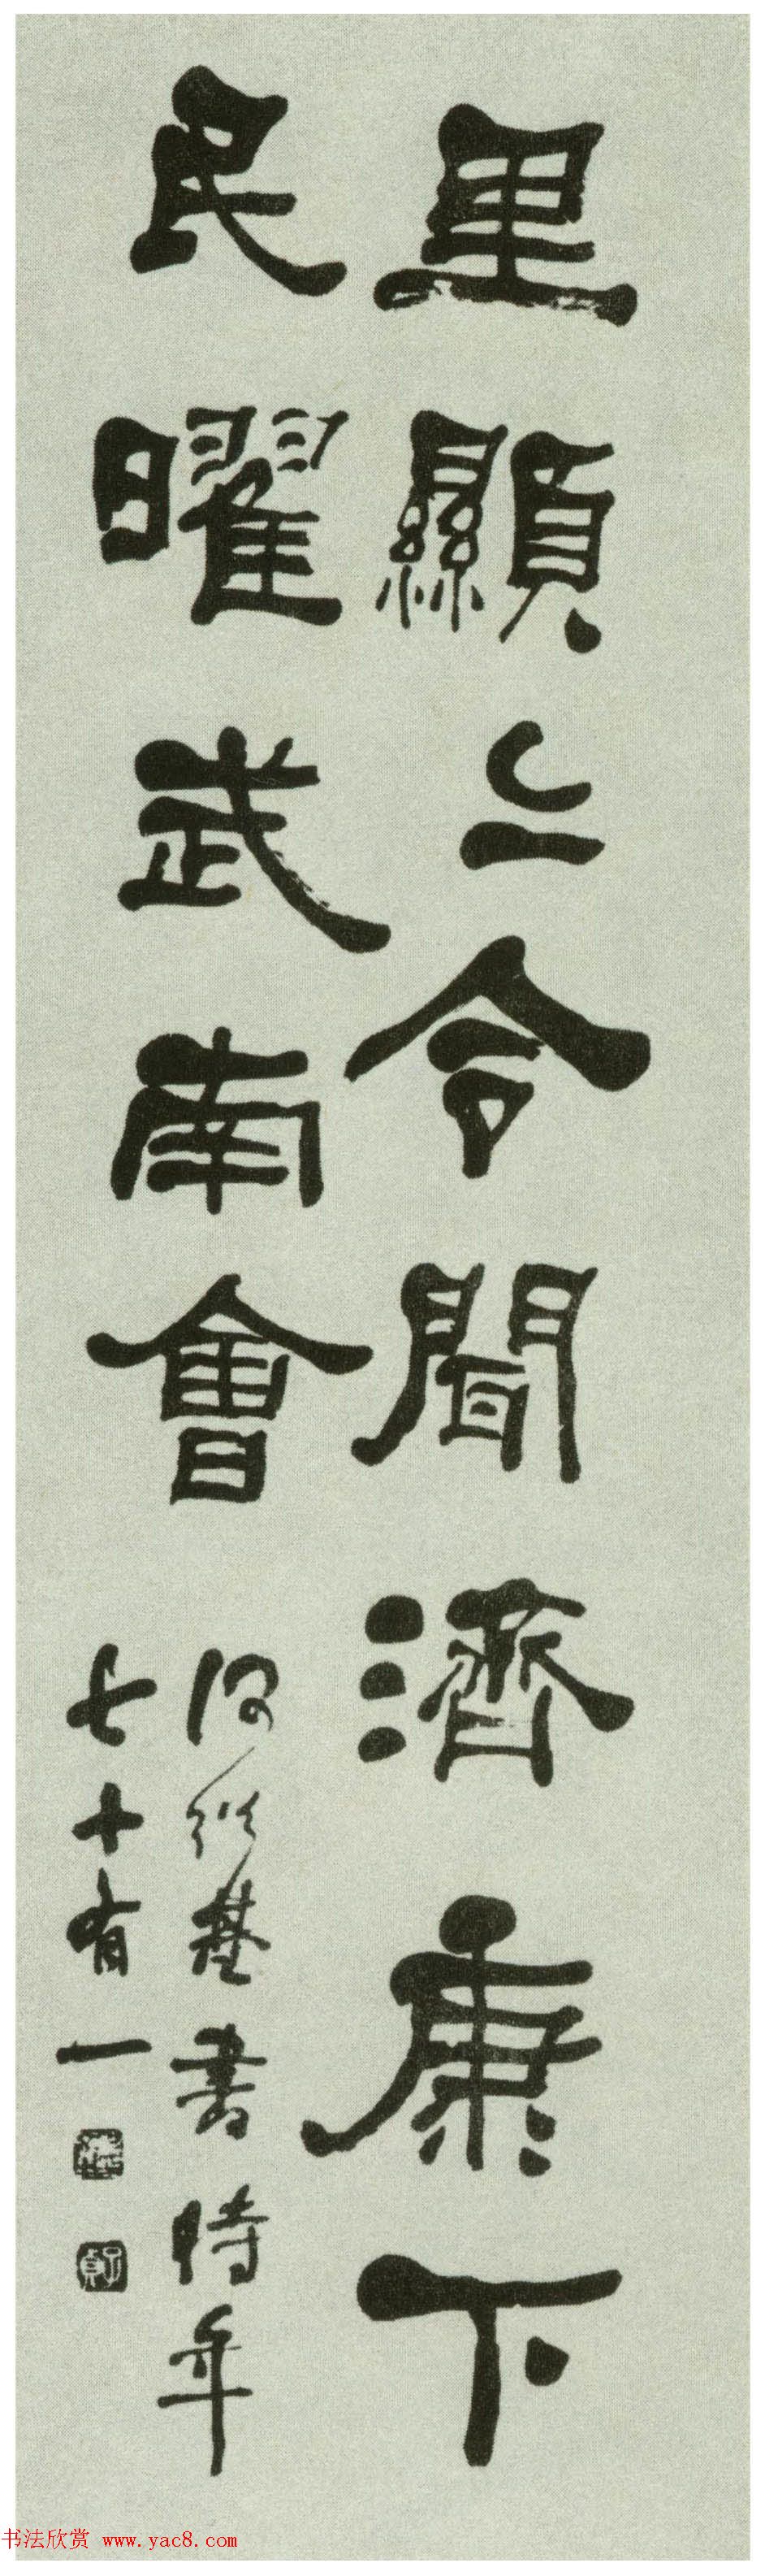 里顯〻令聞濟康下
民曜武南會
何紹基書時年
七十有一
书法欣赏 www.yac8.com